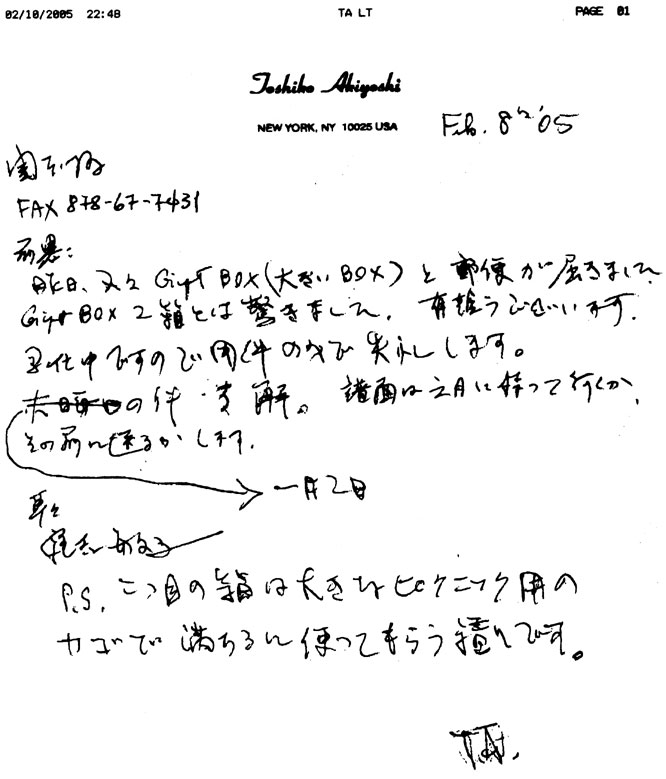 02/10/2005 22:48 TA LT PAGE 01
Toshiko Akiyoshi
NEW YORK, NY 10025 USA
Feb. 8th '05
FAX 878-67-7431
前略:
昨日、又々 Gift BOX (大きい BOX) と郵便が届きました
Gift BOX 2箱とは驚きました。有難うございます。
中ですので用件のみで失礼します。
の件 解。譜面は 月に持って行くか、
その前に送るかします。
一月2日
草々
敏子
P.S. 二つ目の箱は大きなピクニック用の
カゴで満ちるに使ってもらう積りです。
T.A.